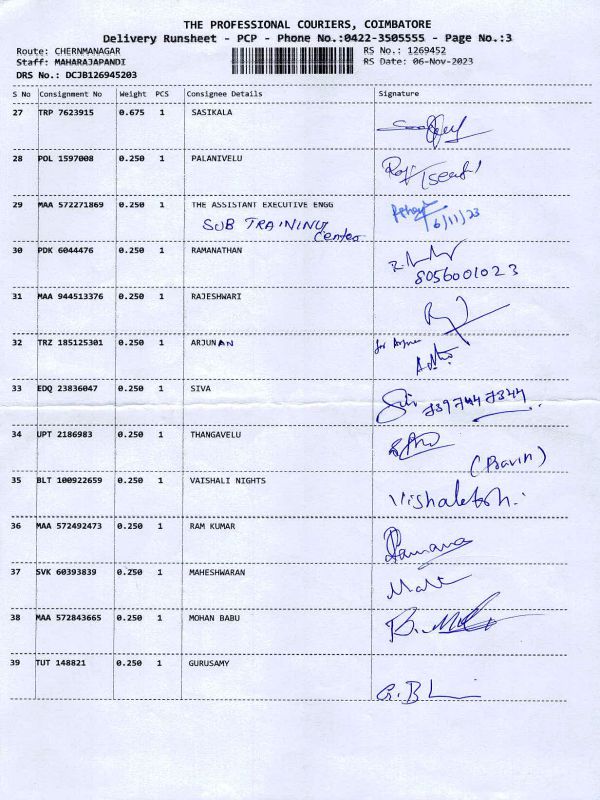 THE PROFESSIONAL COURIERS, COIMBATORE
Delivery Runsheet - PCP - Phone No.:0422-3505555 - Page No.:3
Route: CHERNMANAGAR RS No.: 1269452
Staff: MAHARAJAPANDI RS Date: 06-Nov-2023
DRS No.: DCJB126945203
S No Consignment No Weight PCS Consignee Details Signature
27 TRP 7623915 0.675 1 SASIKALA
28 POL 1597008 0.250 1 PALANIVELU
29 MAA 572271869 0.250 1 THE ASSISTANT EXECUTIVE ENGG
SUB TRAINING 6/11/23
Center
30 PDK 6044476 0.250 1 RAMANATHAN
8056001023
31 MAA 944513376 0.250 1 RAJESHWARI
32 TRZ 185125301 0.250 1 ARJUNAN for
33 EDQ 23836047 0.250 1 SIVA
34 UPT 2186983 0.250 1 THANGAVELU
(Pravin)
35 BLT 100922659 0.250 1 VAISHALI NIGHTS
36 MAA 572492473 0.250 1 RAM KUMAR
Ramana
37 SVK 60393839 0.250 1 MAHESHWARAN
38 MAA 572843665 0.250 1 MOHAN BABU
39 TUT 148821 0.250 1 GURUSAMY